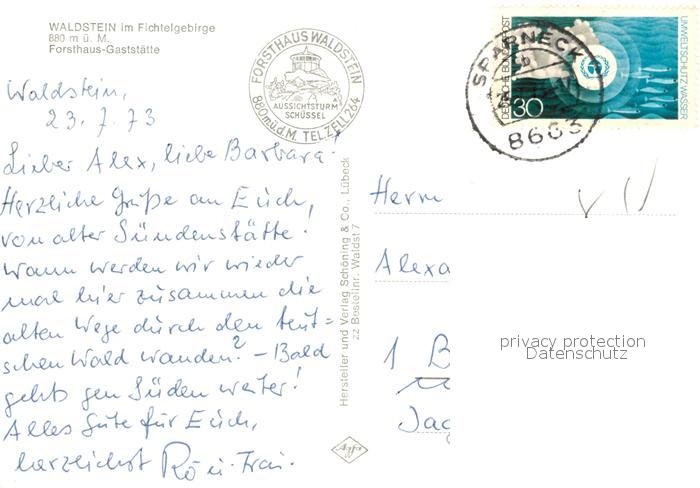 WALDSTEIN im Fichtelgebirge
880 m ü. M.
Forsthaus-Gaststätte
FORSTHAUS WALDSTEIN
AUSSICHTSTURM
SCHÜSSEL
880 m ü. d. M. TELZELL 264
DEUTSCHE BUNDESPOST
UMWELTSCHUTZ WASSER
30
SPARNECK
8663
Waldstein,
23.7.73
Lieber Alex, liebe Barbara!
Herzliche Grüße an Euch,
von alter Sündenstätte.
Wann werden wir wieder
mal hier zusammen die
alten Wege durch den teut=
schen Wald wandern? – Bald
gehts gen Süden weiter!
Alles Gute für Euch,
herzlichst
Hersteller und Verlag Schöning & Co., Lübeck
zz Bestellnr. Waldst 7
Agfa
Herrn
Alexa
1 B
Jag
privacy protection
Datenschutz